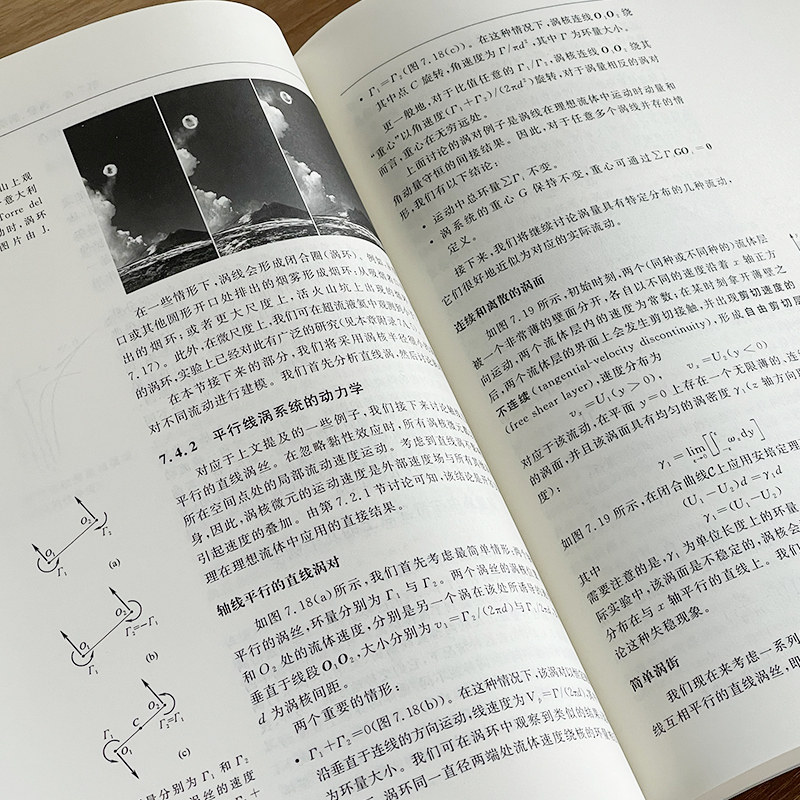 山上观
意大利
Torre del
动时,涡环
图片由 J.
在一些情形下,涡线会形成闭合圈(涡环)。
口或其他圆形开口处排出的烟雾形成烟环;
出的烟环;或者更大尺度上,活火山坑上出现的
7.17)。此外,在微尺度上,我们可在超流液氦中观测
的涡环,实验上已经对此有广泛的研究(见本章附录
在本节接下来的部分,我们将采用涡核半径
对不同流动进行建模。我们首先分析直线涡,然后
7.4.2 平行线涡系统的动力学
对应于上文提及的一些例子,我们接下来讨论
平行的直线涡丝。在忽略黏性效应时,所有涡核微元
所在空间点处的局部流动速度运动。考虑到直线涡
身,因此,涡核微元的运动速度是外部速度场与所有其
引起速度的叠加。由第 7.2.1 节讨论可知,该结论是
理在理想流体中应用的直接结果。
轴线平行的直线涡对
如图 7.18(a)所示,我们首先考虑最简单情形:两个
平行的涡丝,环量分别为 Γ₁ 与 Γ₂。两个涡丝的涡核
和 O₂ 处的流体速度,分别是另一个涡在该处所诱导的
垂直于线段 O₁O₂,大小分别为 v₁=Γ₂/(2πd)与
d 为涡核间距。
两个重要的情形:
• Γ₁+Γ₂=0(图 7.18(b))。在这种情况下,该涡对以
沿垂直于连线的方向运动,线速度为 Vₚ=Γ/(2πd),
为环量大小。我们可在涡环中观察到类似的结果
涡环同一直径两端处流体速度绕核的环
O₂
O₁
Γ₁
(a)
O₂
Γ₂=-Γ₁
O₁
Γ₁
(b)
O₂
Γ₁
C
Γ₂=Γ₁
O₁
(c)
量分别为 Γ₁ 和 Γ₂
涡丝的速度
• Γ₁=Γ₂(图 7.18(c))。在这种情况下,涡核连线 O₁O₂ 绕
其中点 C 旋转,角速度为 Γ/πd²,其中 Γ 为环量大小。
更一般地,对于比值任意的 Γ₁/Γ₂,涡核连线 O₁O₂ 绕其
“重心”以角速度(Γ₁+Γ₂)/(2πd²)旋转,对于涡量相反的涡对
而言,重心在无穷远处。
上面讨论的涡对例子是涡线在理想流体中运动时动量和
角动量守恒的间接结果。因此,对于任意多个涡线并存的情
形,我们有以下结论:
• 运动中总环量∑Γᵢ 不变。
• 涡系统的重心 G 保持不变,重心可通过∑ΓᵢGOᵢ=0
定义。
接下来,我们将继续讨论涡量具有特定分布的几种流动,
它们很好地近似为对应的实际流动。
连续和离散的涡面
如图 7.19 所示,初始时刻,两个(同种或不同种的)流体层
被一个非常薄的壁面分开,各自以不同的速度沿着 x 轴正方
向运动,两个流体层内的速度为常数;在某时刻拿开薄壁之
后,两个流体层的界面上会发生剪切接触,并出现剪切速度的
不连续(tangential-velocity discontinuity),形成自由剪切层
(free shear layer),速度分布为
vₓ=U₁(y>0), vₓ=U₂(y<0)
对应于该流动,在平面 y=0 上存在一个无限薄的、连
的涡面,并且该涡面具有均匀的涡密度 γ₁(z 轴方向
度):
如图 7.19 所示,在闭合曲线C上应用安培定理
(U₁-U₂)d=γ₁d
其中
γ₁=(U₁-U₂)
需要注意的是,γ₁ 为单位长度上的环量
际实验中,该涡面是不稳定的,涡核会
分布在与 x 轴平行的直线上。我们
论这种失稳现象。
简单涡街
我们现在来考虑一系列
线互相平行的直线涡丝,即